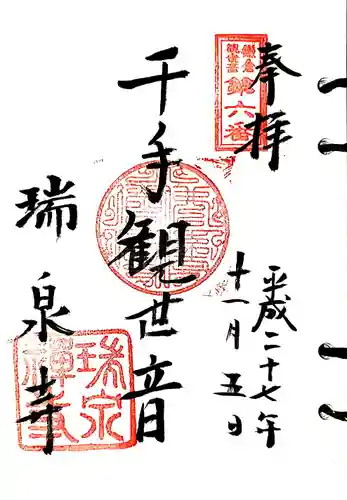 奉拝
鎌倉
観世音
第六番
平成二十七年
十一月五日
千手観世音
瑞泉寺
瑞泉
禅寺